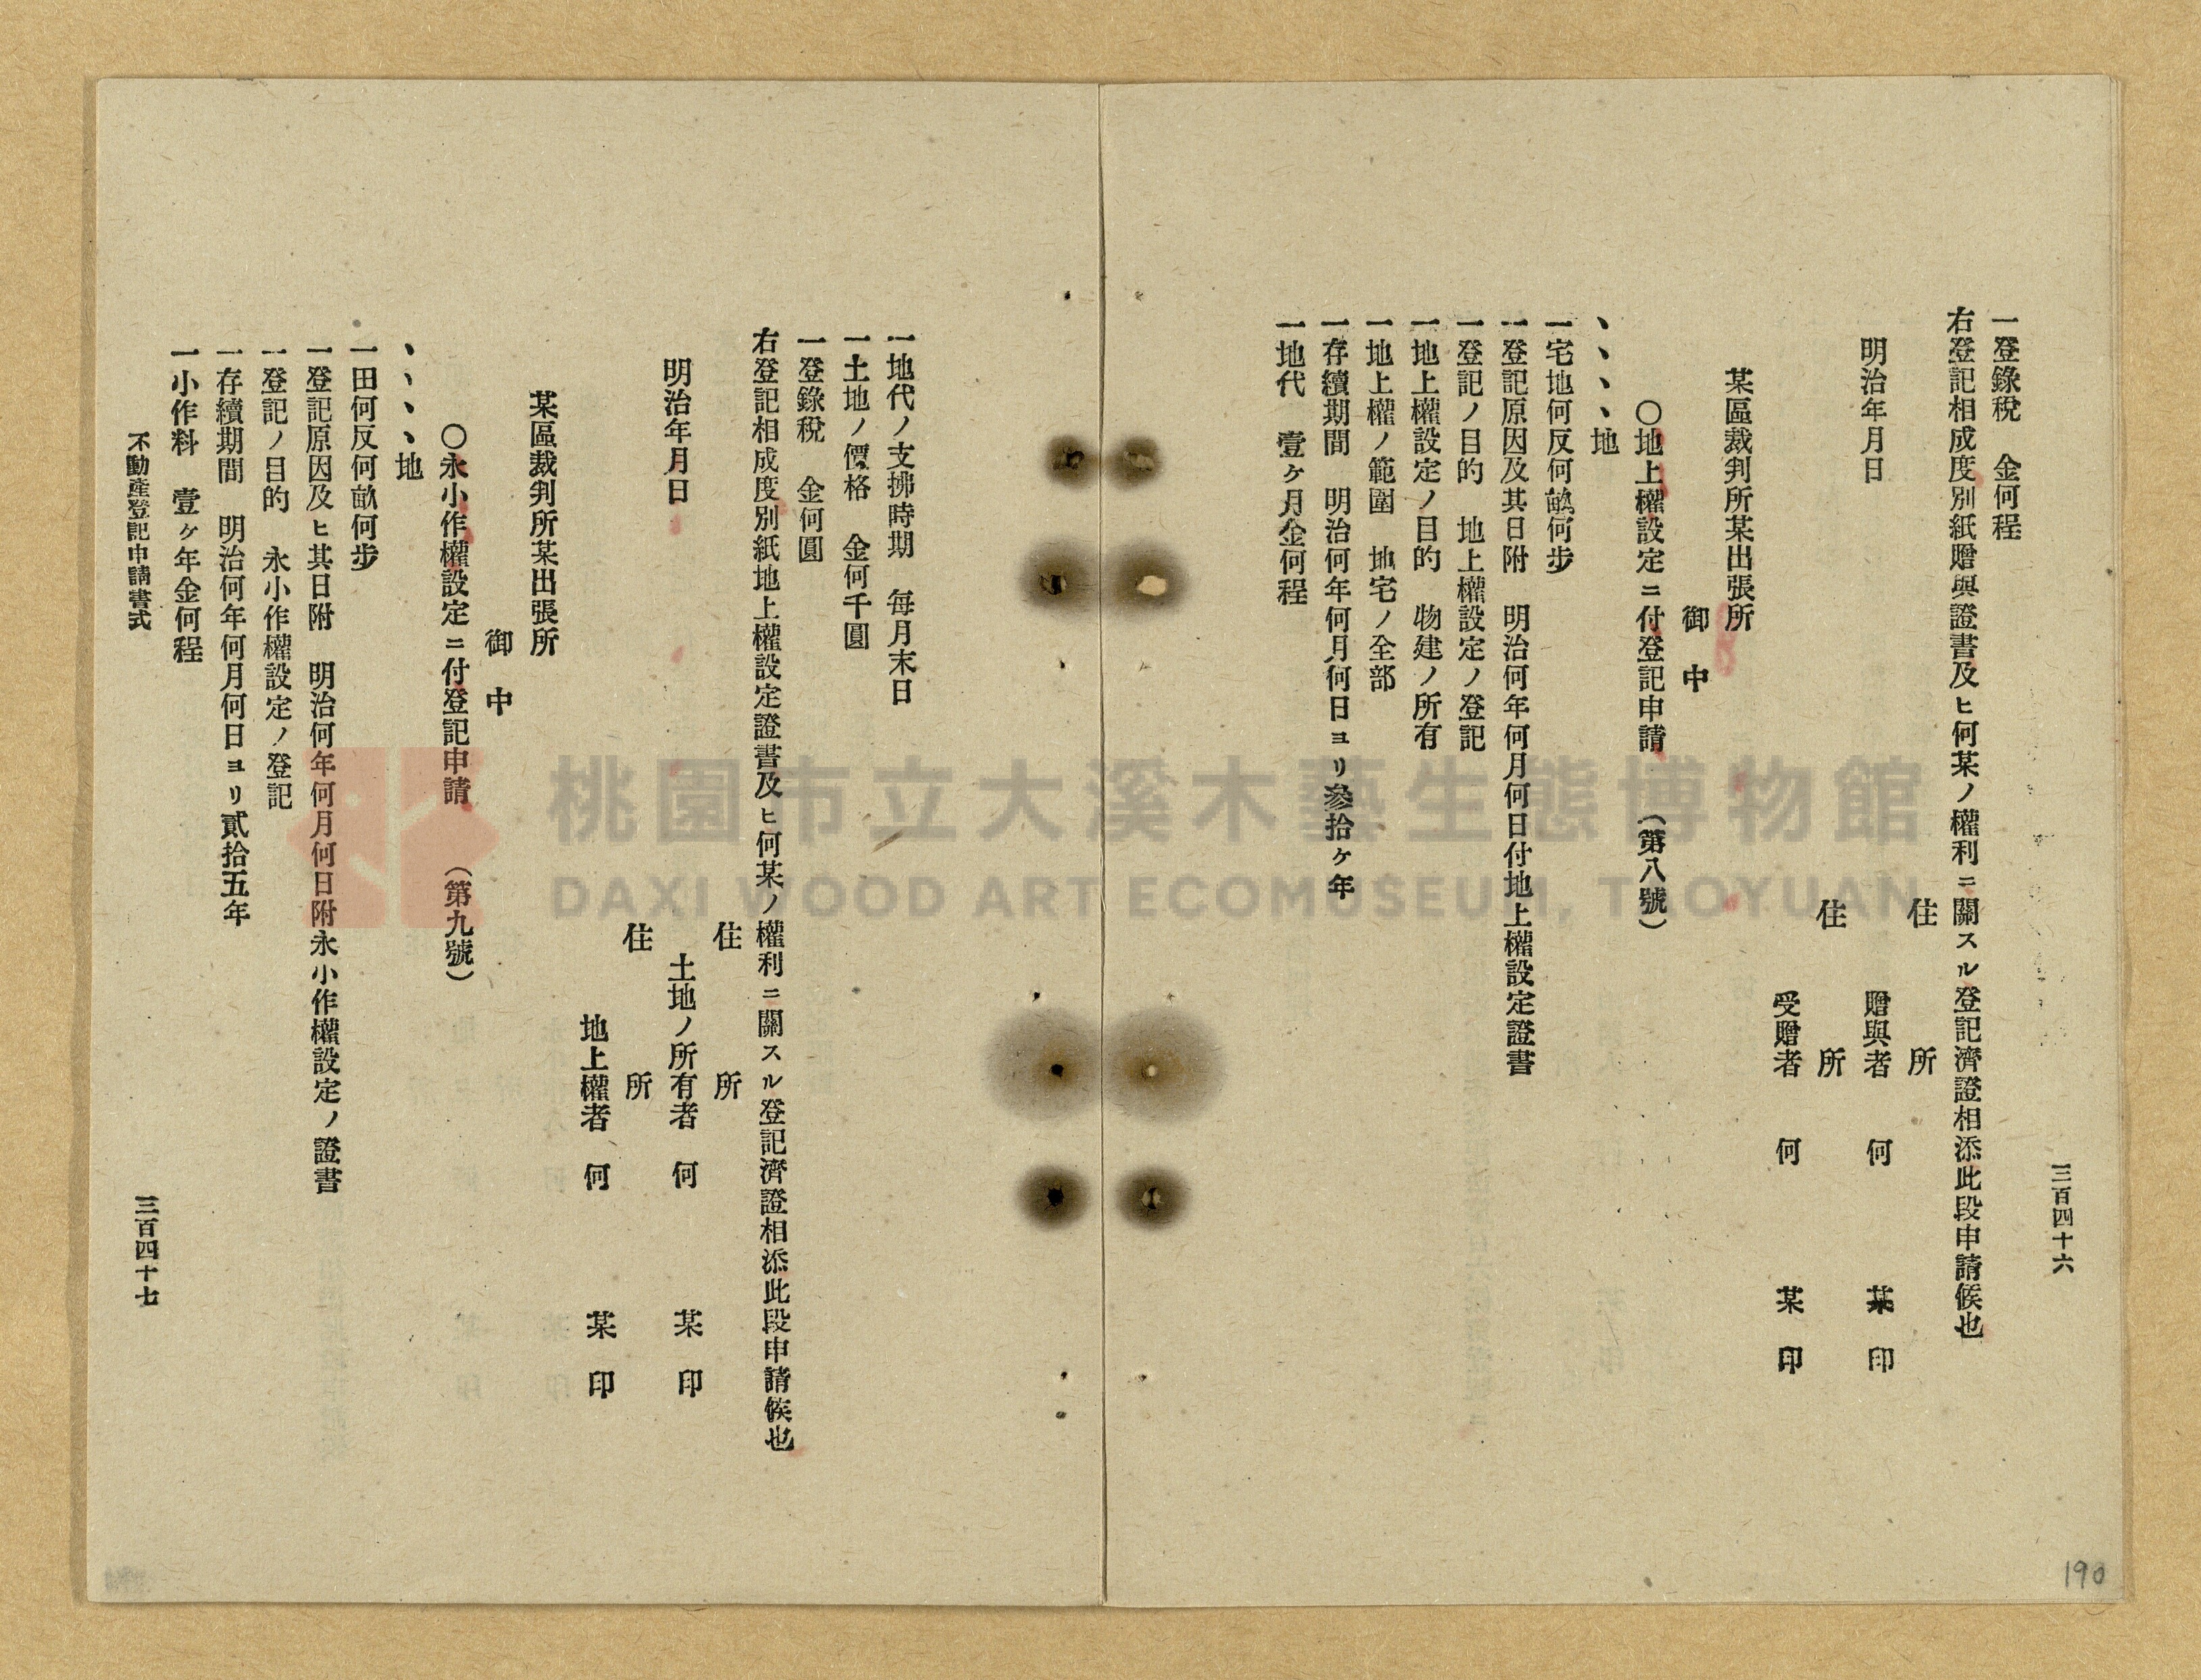 三百四十六
一登錄稅　金何程
右登記相成度別紙贈與證書及ヒ何某ノ權利ニ關スル登記濟證相添此段申請候也
住　所
明治年月日　贈與者　何　某　印
住　所
受贈者　何　某　印
某區裁判所某出張所
御　中
〇地上權設定ニ付登記申請　(第八號)
、、、、地
一宅地何反何畝何步
一登記原因及其日附　明治何年何月何日付地上權設定證書
一登記ノ目的　地上權設定ノ登記
一地上權設定ノ目的　物建ノ所有
一地上權ノ範圍　地宅ノ全部
一存續期間　明治何年何月何日ヨリ參拾ケ年
一地代　壹ケ月金何程
一地代ノ支拂時期　每月末日
一土地ノ價格　金何千圓
一登錄稅　金何圓
右登記相成度別紙地上權設定證書及ヒ何某ノ權利ニ關スル登記濟證相添此段申請候也
住　所
明治年月日　土地ノ所有者　何　某　印
住　所
地上權者　何　某　印
某區裁判所某出張所
御　中
〇永小作權設定ニ付登記申請　(第九號)
、、、、地
一田何反何畝何步
一登記原因及ヒ其日附　明治何年何月何日附永小作權設定ノ證書
一登記ノ目的　永小作權設定ノ登記
一存續期間　明治何年何月何日ヨリ貳拾五年
一小作料　壹ケ年金何程
不動產登記申請書式　三百四十七
190
桃園市立大溪木藝生態博物館
DAXI WOOD ART ECOMUSEUM, TAOYUAN